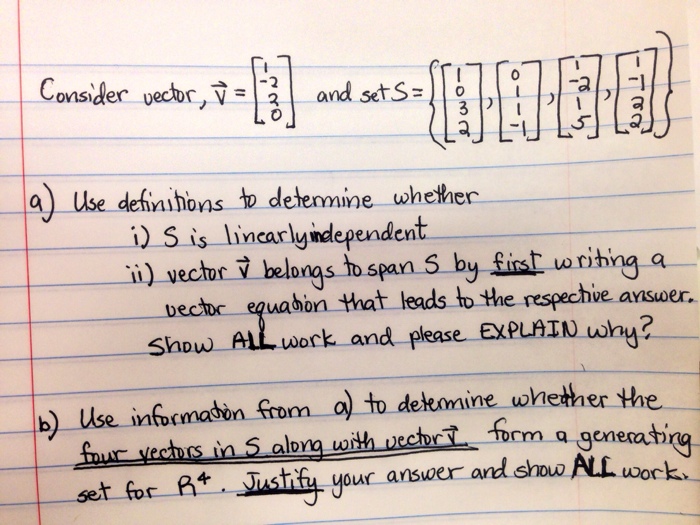 Consider vector, v⃗ = [1 -2 2 0] and set S = {[1 0 3 2], [0 1 1 -1], [1 -2 1 5], [1 -1 2 2]}
a) Use definitions to determine whether
i) S is linearly independent
ii) vector v⃗ belongs to span S by first writing a
vector equation that leads to the respective answer.
Show ALL work and please EXPLAIN why?
b) Use information from a) to determine whether the
four vectors in S along with vector v⃗ form a generating
set for R⁴. Justify your answer and show ALL work.